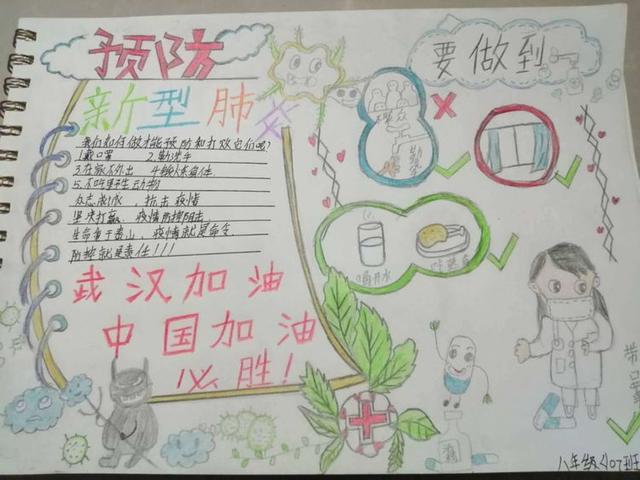 预防
新型肺炎
要做到
我们如何做才能预防和打败它们呢?
1.戴口罩 2.勤洗手
3.在家不外出
5.不吃野生动物
众志成城,抗击疫情
坚决打赢,疫情防控阻击,
生命重于泰山,疫情就是命令
防控就是责任!!!
武汉加油
中国加油
必胜!
喝开水
吃蔬菜
戴口罩
八年级407班